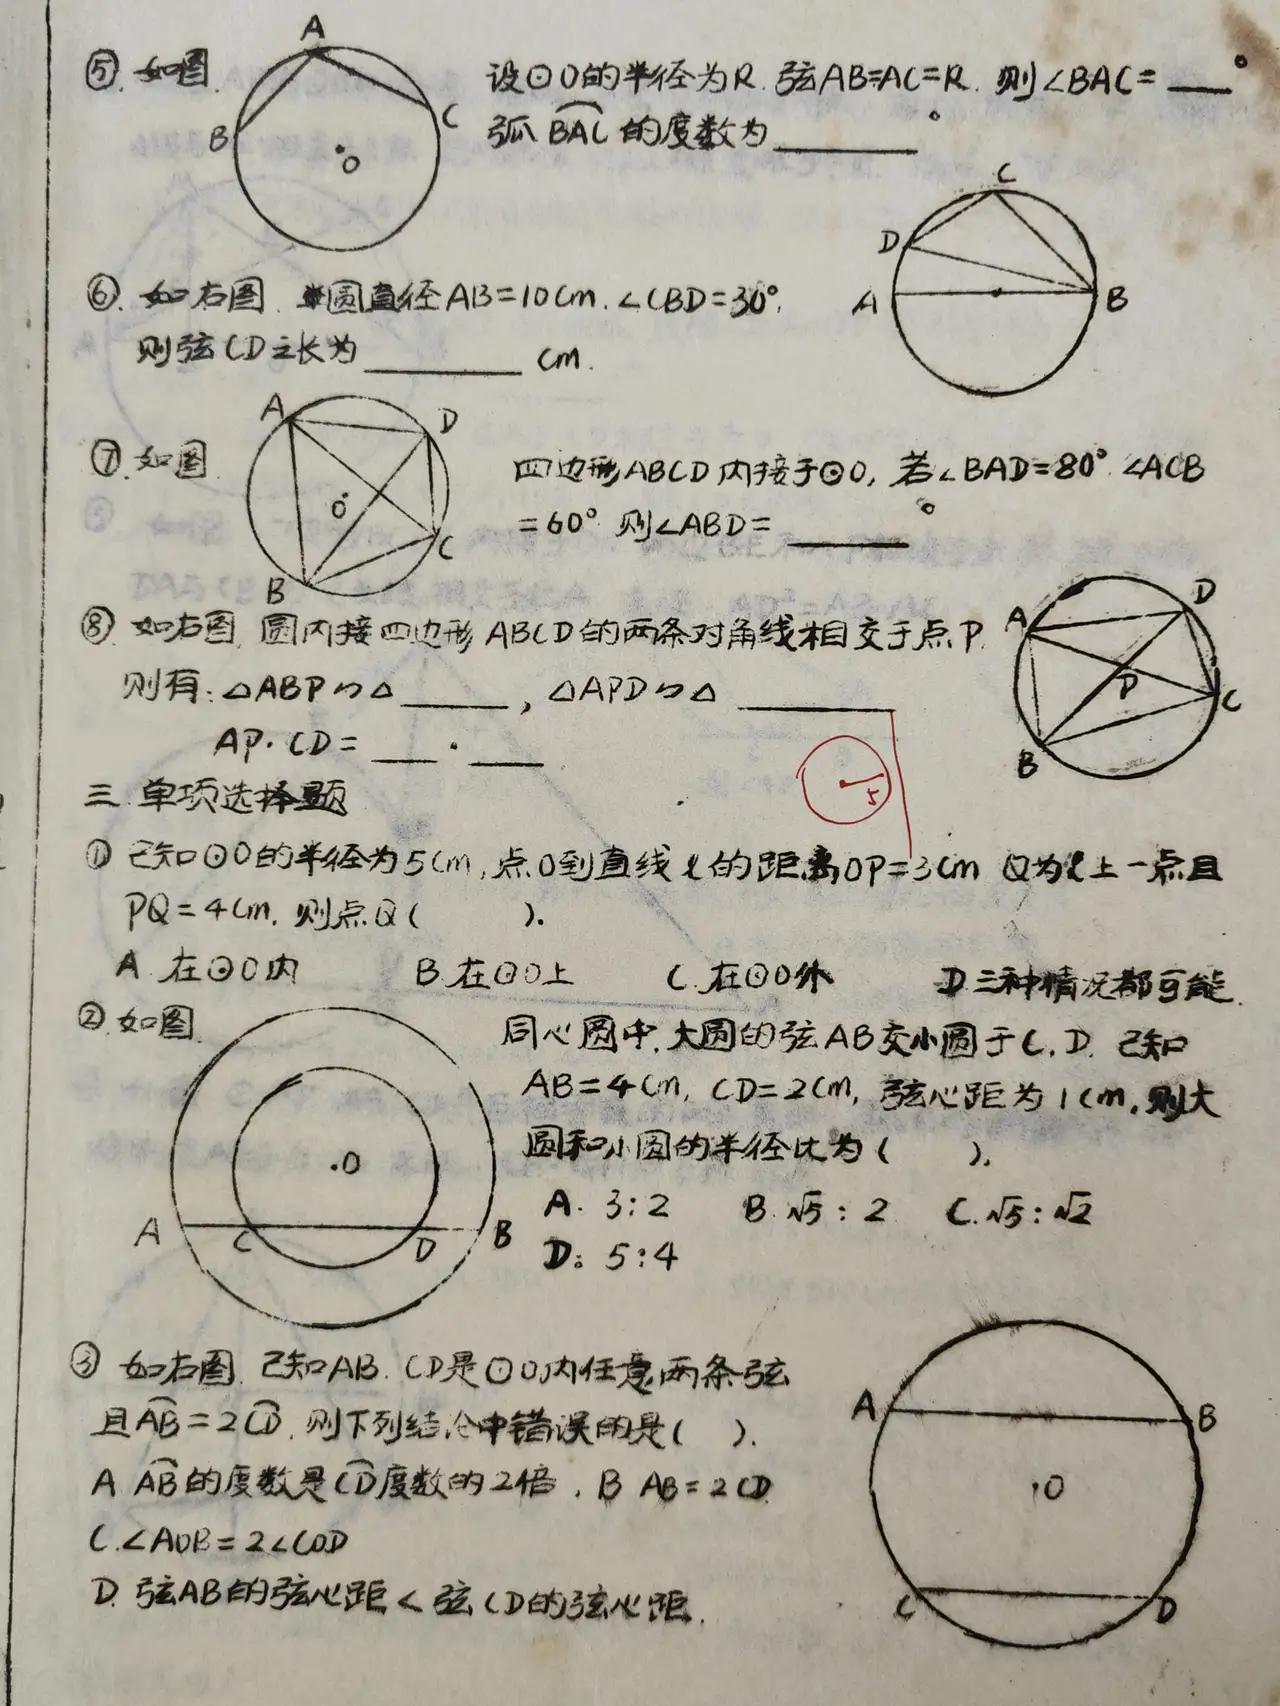 ⑤.如图.
A
B
C
O
设⊙O的半径为R.弦AB=AC=R.则∠BAC=___°
弧BAC的度数为______°
C
D
A
B
⑥.如右图.圆直径AB=10cm.∠CBD=30°.
则弦CD之长为______cm.
A
D
O
C
B
⑦.如图
四边形ABCD内接于⊙O,若∠BAD=80°∠ACB
=60°则∠ABD=______°
⑧.如右图.圆内接四边形ABCD的两条对角线相交于点P.
则有:△ABP∽△______,△APD∽△______
AP·CD=___·___
A
D
P
C
B
5
三.单项选择题
①已知⊙O的半径为5cm,点O到直线ℓ的距离OP=3cm Q为ℓ上一点且
PQ=4cm,则点Q( ).
A.在⊙O内 B.在⊙O上 C.在⊙O外 D.三种情况都可能.
②.如图.
同心圆中,大圆的弦AB交小圆于C,D.已知
AB=4cm,CD=2cm,弦心距为1cm,则大
圆和小圆的半径比为( ).
A. 3:2 B.√5:2 C.√5:√2
D. 5:4
O
A
C
D
B
③如右图.已知AB.CD是⊙O内任意两条弦
且AB=2CD.则下列结论中错误的是( ).
A AB的度数是CD度数的2倍.B AB=2CD
C.∠AOB=2∠COD
D.弦AB的弦心距<弦CD的弦心距.
A
B
O
C
D